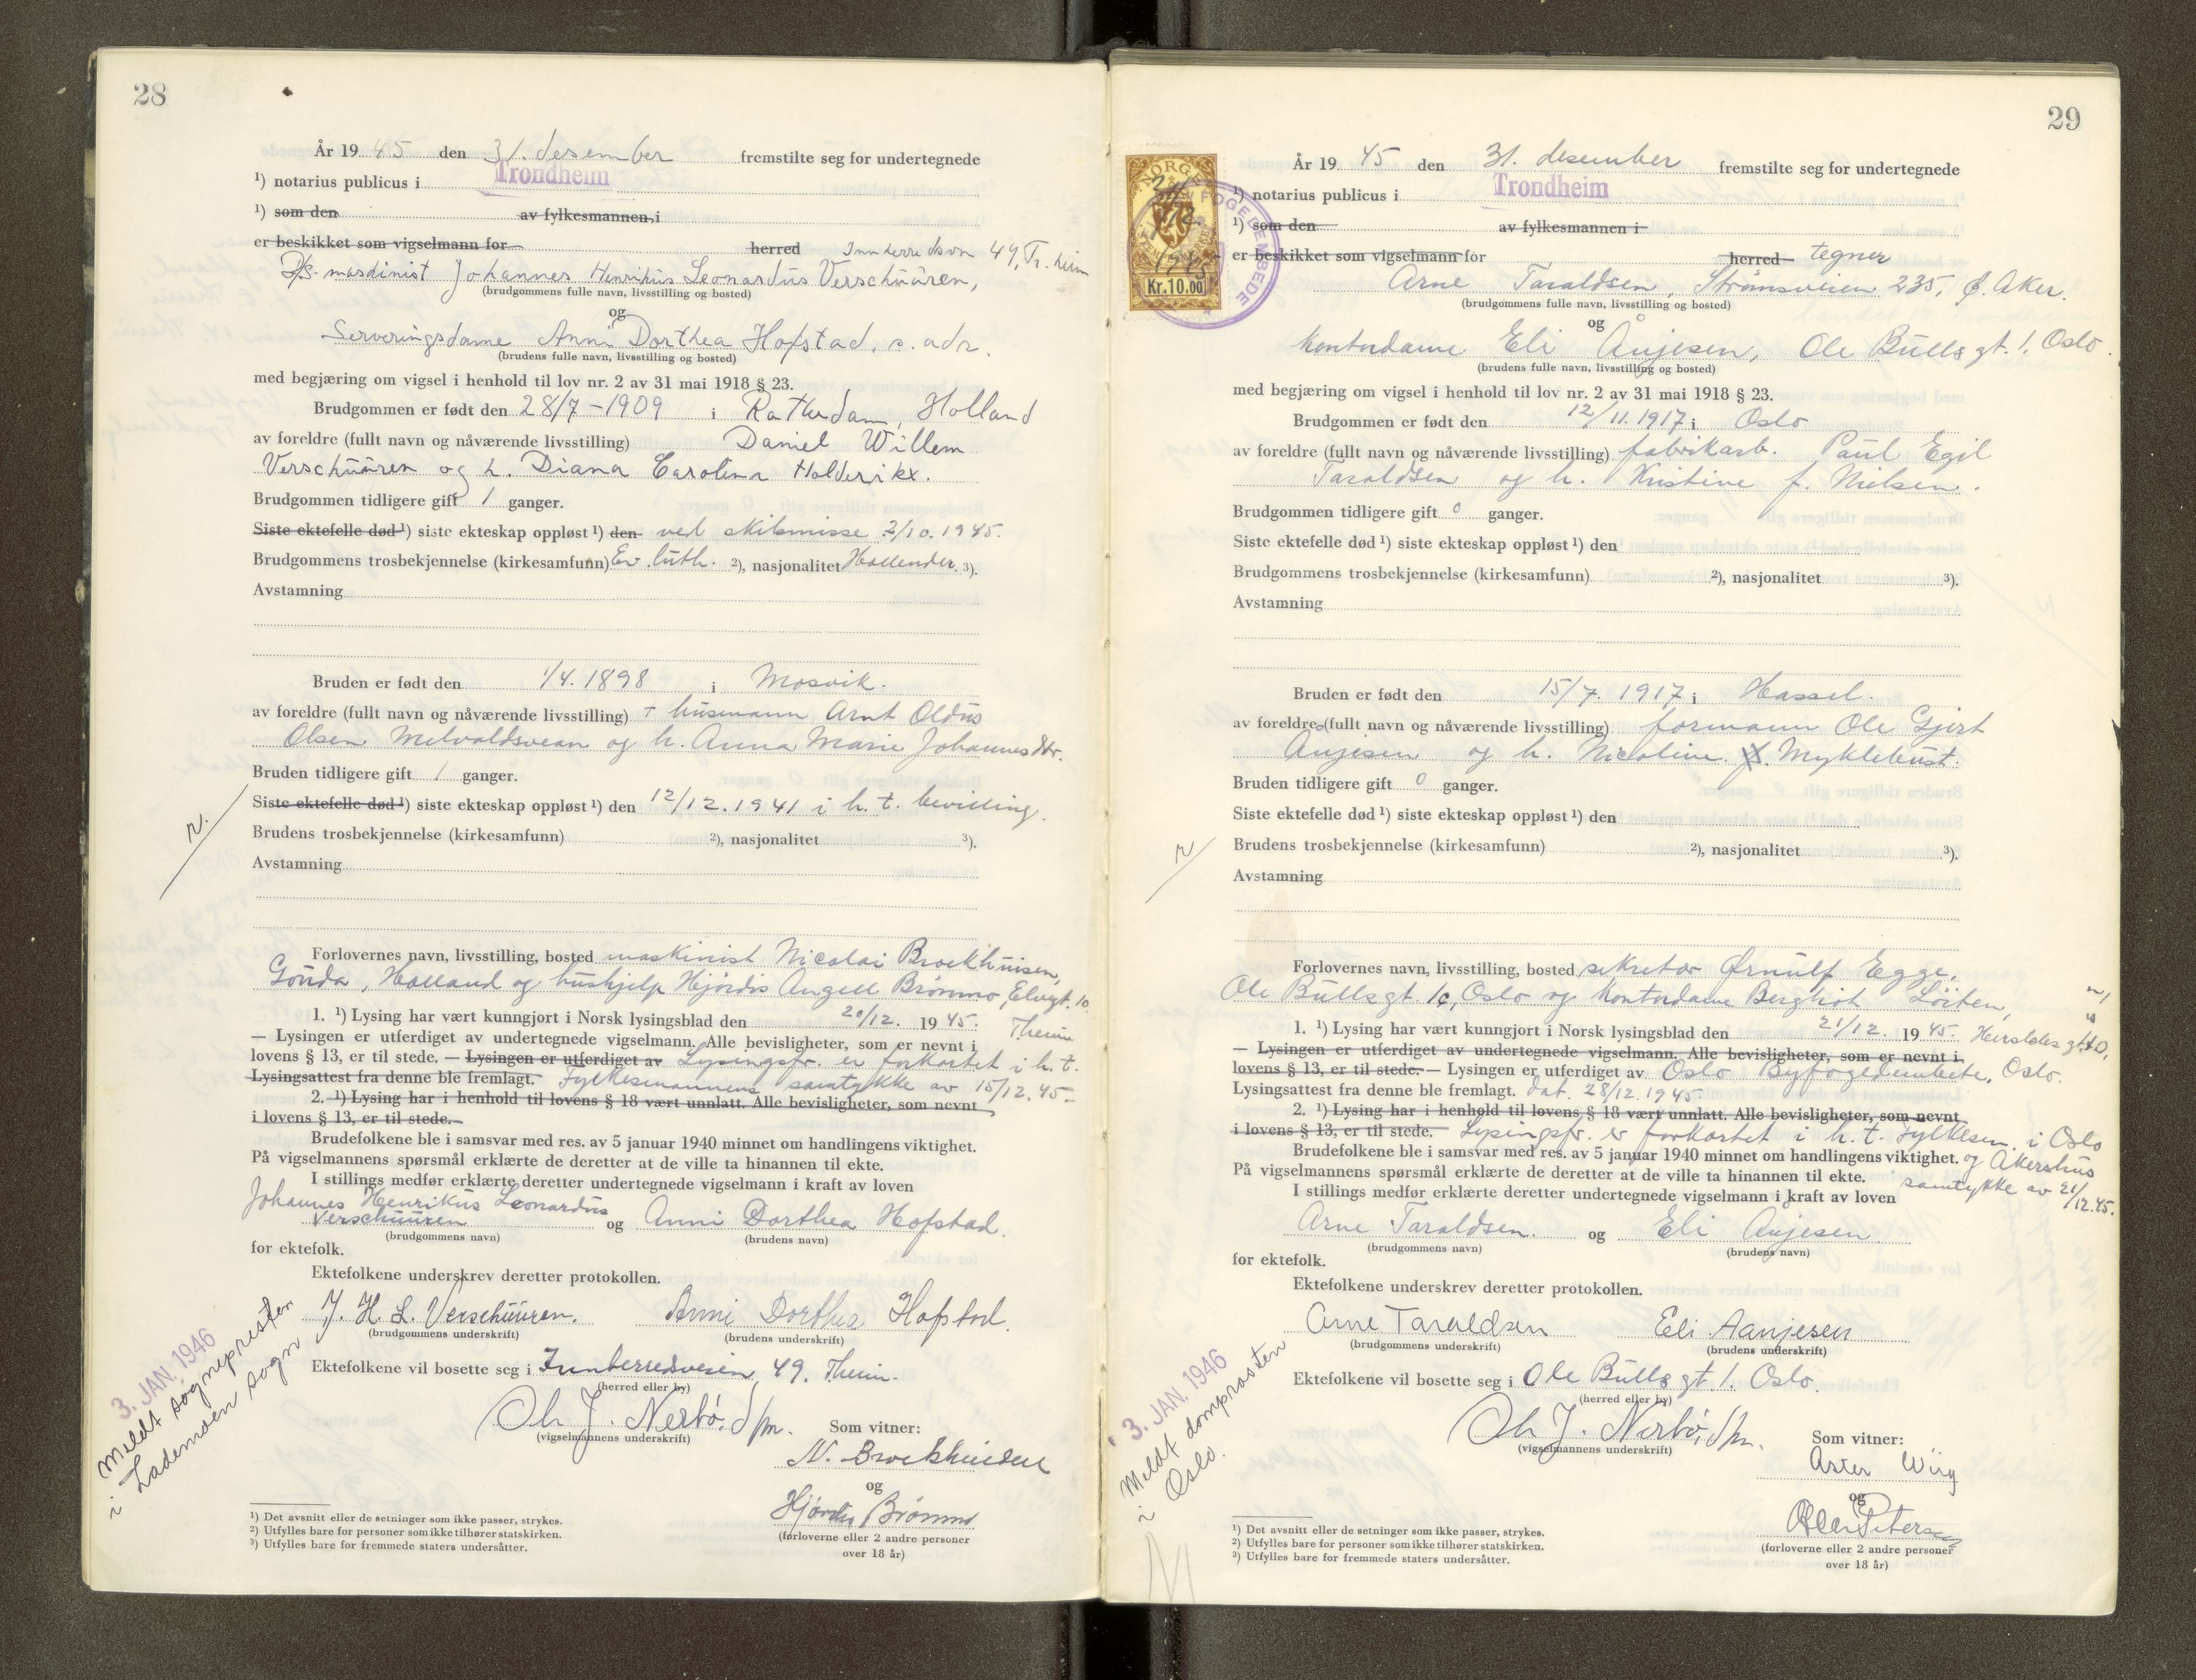 28
År 19 45 den 31. desember fremstilte seg for undertegnede
¹) notarius publicus i Trondheim
¹) som den av fylkesmannen i
er beskikket som vigselmann for herred Innherredsvn 49, Tr.heim
D/s. maskinist Johannes Henrikus Leonardus Verschuuren,
(brudgommens fulle navn, livsstilling og bosted)
og
Serveringsdame Anni Dorthea Hofstad, s. adr.
(brudens fulle navn, livsstilling og bosted)
med begjæring om vigsel i henhold til lov nr. 2 av 31 mai 1918 § 23.
Brudgommen er født den 28/7-1909 i Rotterdam, Holland
av foreldre (fullt navn og nåværende livsstilling) Daniel Willem
Verschuuren og h. Diana Carolina Holderikx.
Brudgommen tidligere gift 1 ganger.
Siste ektefelle død ¹) siste ekteskap oppløst ¹) den ved skilsmisse 2/10.1945.
Brudgommens trosbekjennelse (kirkesamfunn) Ev. luth. ²), nasjonalitet Hollender. ³).
Avstamning
Bruden er født den 1/4.1898 i Mosvik.
av foreldre (fullt navn og nåværende livsstilling) + husmann Arnt Oldus
Olsen Melvoldsvean og h. Anna Marie Johannesdtr.
Bruden tidligere gift 1 ganger.
Siste ektefelle død ¹) siste ekteskap oppløst ¹) den 12/12.1941 i h. t. bevilling.
Brudens trosbekjennelse (kirkesamfunn) ²), nasjonalitet ³).
Avstamning
Forlovernes navn, livsstilling, bosted maskinist Nicolai Broekhuisen,
Gouda, Holland og hushjelp Hjørdis Angell Brømmo, Elvegt. 10
1. ¹) Lysing har vært kunngjort i Norsk lysingsblad den 20/12. 19 45. Theim
— Lysingen er utferdiget av undertegnede vigselmann. Alle bevisligheter, som er nevnt i
lovens § 13, er til stede. — Lysingen er utferdiget av Lysingsfr. er forkortet i h. t.
Lysingsattest fra denne ble fremlagt. Fylkesmannens samtykke av 15/12.45.
2. ¹) Lysing har i henhold til lovens § 18 vært unnlatt. Alle bevisligheter, som nevnt
i lovens § 13, er til stede.
Brudefolkene ble i samsvar med res. av 5 januar 1940 minnet om handlingens viktighet.
På vigselmannens spørsmål erklærte de deretter at de ville ta hinannen til ekte.
I stillings medfør erklærte deretter undertegnede vigselmann i kraft av loven
Johannes Henrikus Leonardus
Verschuuren og Anni Dorthea Hofstad.
(brudgommens navn) (brudens navn)
for ektefolk.
Ektefolkene underskrev deretter protokollen.
J. H. L. Verschuuren. Anni Dorthea Hofstad.
(brudgommens underskrift) (brudens underskrift)
Ektefolkene vil bosette seg i Innherredsveien 49, Theim.
(herred eller by)
Ole J. Nerbø, d/m. Som vitner:
(vigselmannens underskrift)
N. Broekhuisen
og
Hjørdis Brømmo
(forloverne eller 2 andre personer
over 18 år)
3. JAN. 1946
Meldt sogneprester
i Lademoen sogn
¹) Det avsnitt eller de setninger som ikke passer, strykes.
²) Utfylles bare for personer som ikke tilhører statskirken.
³) Utfylles bare for fremmede staters undersåtter.
29
NORGE
Kr.10.00
FOGEDEMBEDE
År 19 45 den 31. desember fremstilte seg for undertegnede
¹) notarius publicus i Trondheim
¹) som den av fylkesmannen i
er beskikket som vigselmann for herred tegner
Arne Taraldsen, Strømsveien 235, Ø. Aker.
(brudgommens fulle navn, livsstilling og bosted)
og
Kontordame Eli Ånjesen, Ole Bulls gt. 1. Oslo.
(brudens fulle navn, livsstilling og bosted)
med begjæring om vigsel i henhold til lov nr. 2 av 31 mai 1918 § 23.
Brudgommen er født den 12/11.1917 i Oslo
av foreldre (fullt navn og nåværende livsstilling) fabrikarb. Paul Egil
Taraldsen og h. Kristine f. Nielsen.
Brudgommen tidligere gift 0 ganger.
Siste ektefelle død ¹) siste ekteskap oppløst ¹) den
Brudgommens trosbekjennelse (kirkesamfunn) ²), nasjonalitet ³).
Avstamning
Bruden er født den 15/7. 1917 i Hassel.
av foreldre (fullt navn og nåværende livsstilling) formann Ole Gjert
Ånjesen og h. Nicoline f. Myklebust.
Bruden tidligere gift 0 ganger.
Siste ektefelle død ¹) siste ekteskap oppløst ¹) den
Brudens trosbekjennelse (kirkesamfunn) ²), nasjonalitet ³).
Avstamning
Forlovernes navn, livsstilling, bosted sekretær Ørnulf Egge,
Ole Bullsgt. 1c, Oslo og Kontordame Bergliot Löiten,
1. ¹) Lysing har vært kunngjort i Norsk lysingsblad den 21/12. 19 45.
— Lysingen er utferdiget av undertegnede vigselmann. Alle bevisligheter, som er nevnt i
lovens § 13, er til stede. — Lysingen er utferdiget av Oslo Byfogedembete, Oslo.
Lysingsattest fra denne ble fremlagt. dat. 28/12.1945.
2. ¹) Lysing har i henhold til lovens § 18 vært unnlatt. Alle bevisligheter, som nevnt
i lovens § 13, er til stede. Lysingsfr. er forkortet i h. t. Fylkesm. i Oslo
Brudefolkene ble i samsvar med res. av 5 januar 1940 minnet om handlingens viktighet. og Akershus
På vigselmannens spørsmål erklærte de deretter at de ville ta hinannen til ekte. samtykke av 21/12.45.
I stillings medfør erklærte deretter undertegnede vigselmann i kraft av loven
Arne Taraldsen. og Eli Ånjesen
(brudgommens navn) (brudens navn)
for ektefolk.
Ektefolkene underskrev deretter protokollen.
Arne Taraldsen Eli Aanjesen
(brudgommens underskrift) (brudens underskrift)
Ektefolkene vil bosette seg i Ole Bulls gt. 1. Oslo.
(herred eller by)
Ole J. Nerbø, d/m. Som vitner:
(vigselmannens underskrift)
Aster Wiig
og
Petersen
(forloverne eller 2 andre personer
over 18 år)
3. JAN. 1946
Meldt domprosten
i Oslo.
¹) Det avsnitt eller de setninger som ikke passer, strykes.
²) Utfylles bare for personer som ikke tilhører statskirken.
³) Utfylles bare for fremmede staters undersåtter.